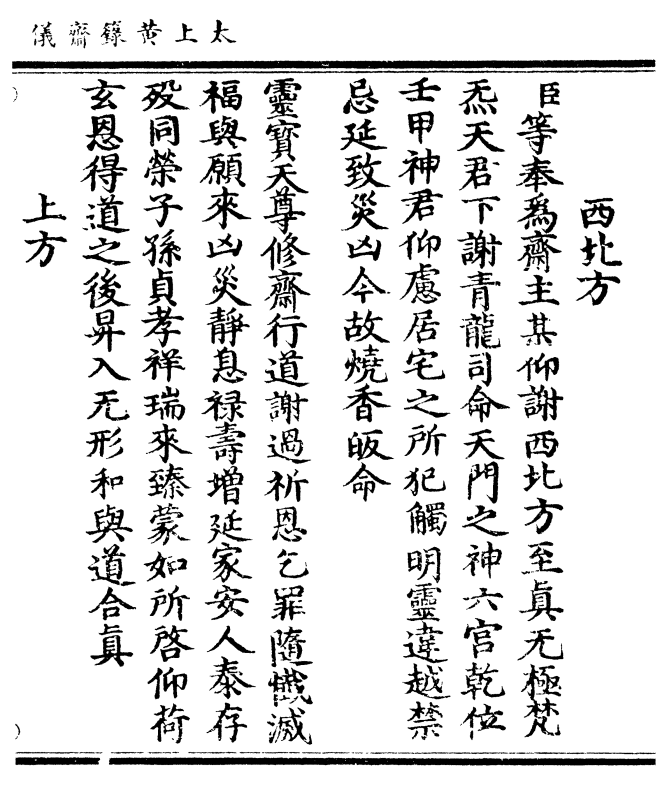 太上黄籙齋儀
西北方
臣等奉爲齋主某仰謝西北方至真无極梵
炁天君下謝青龍司命天門之神六宫乾位
壬甲神君仰慮居宅之所犯觸明靈違越禁
忌延致災凶今故燒香皈命
靈寶天尊修齋行道謝過祈恩乞罪隨懺滅
福與願來凶災靜息禄壽増延家安人泰存
殁同榮子孫貞孝祥瑞來臻蒙如所啓仰荷
玄恩得道之後昇入无形和與道合真
上方